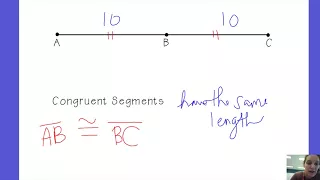 10 10
A B C
Congruent Segments have the same
length
AB ≅ BC